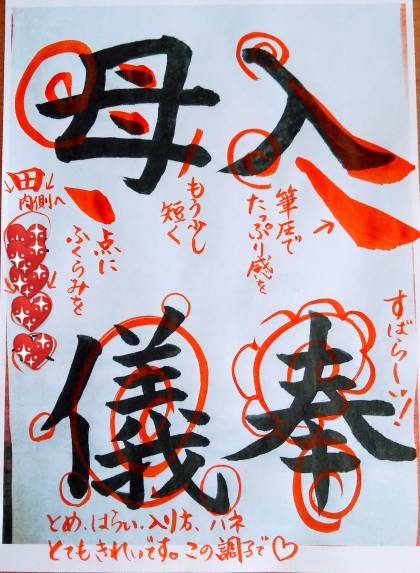 入
筆圧で
たっぷり感を
奉
すばらしーッ!
母
もう少し
短く
点に
ふくらみを
内側へ
儀
とめ、はらい、入り方、ハネ
とてもきれいです。この調子で♡